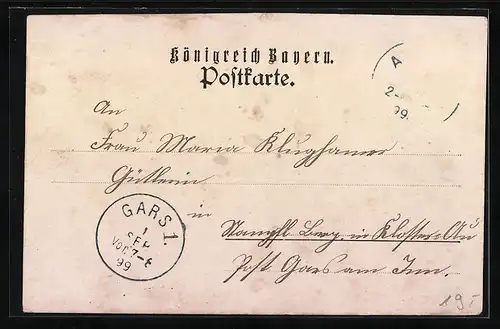 Königreich Bayern.
Postkarte.
A
2
99.
An
Frau Maria Klughamer
Gütlerin
in
Berg in Kloster Au
Post Gars am Inn.
GARS 1.
1
SEP
VOR.7-8
99
19.-